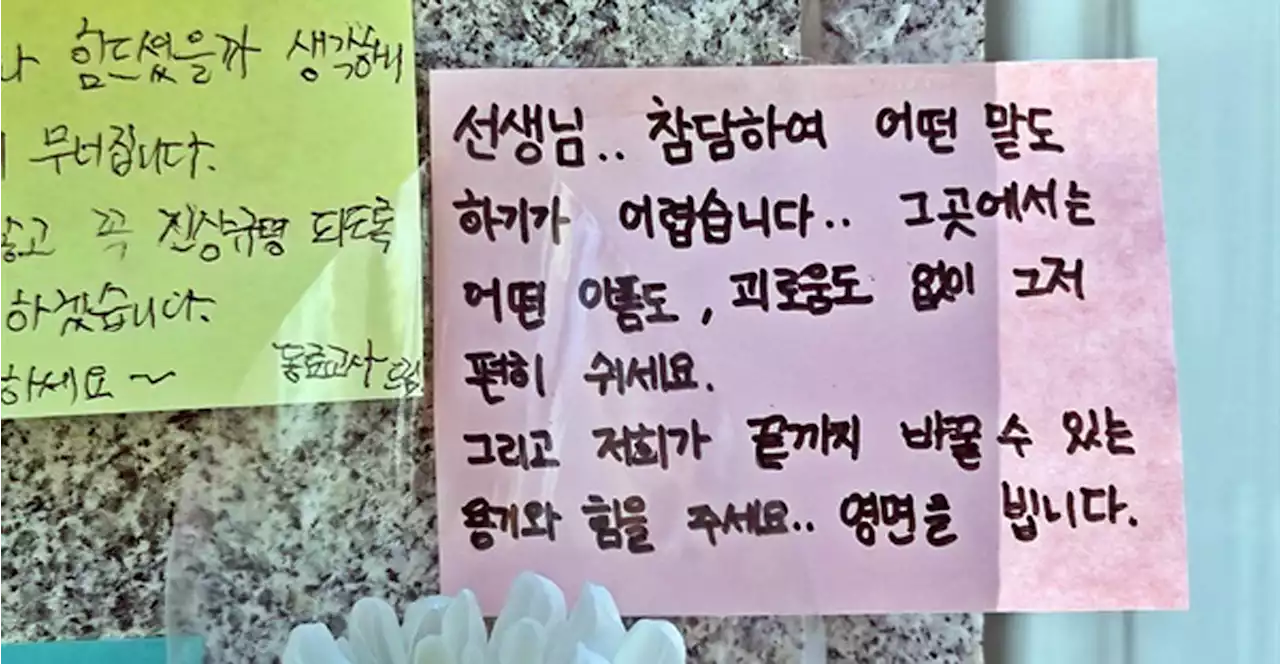 힘드셨을까 생각하니
무너집니다.
않고 꼭 진상규명 되도록
하겠습니다.
하세요~
동료교사 드림
선생님.. 참담하여 어떤 말도
하기가 어렵습니다.. 그곳에서는
어떤 아픔도, 괴로움도 없이 그저
편히 쉬세요.
그리고 저희가 끝까지 바꿀 수 있는
용기와 힘을 주세요.. 영면을 빕니다.